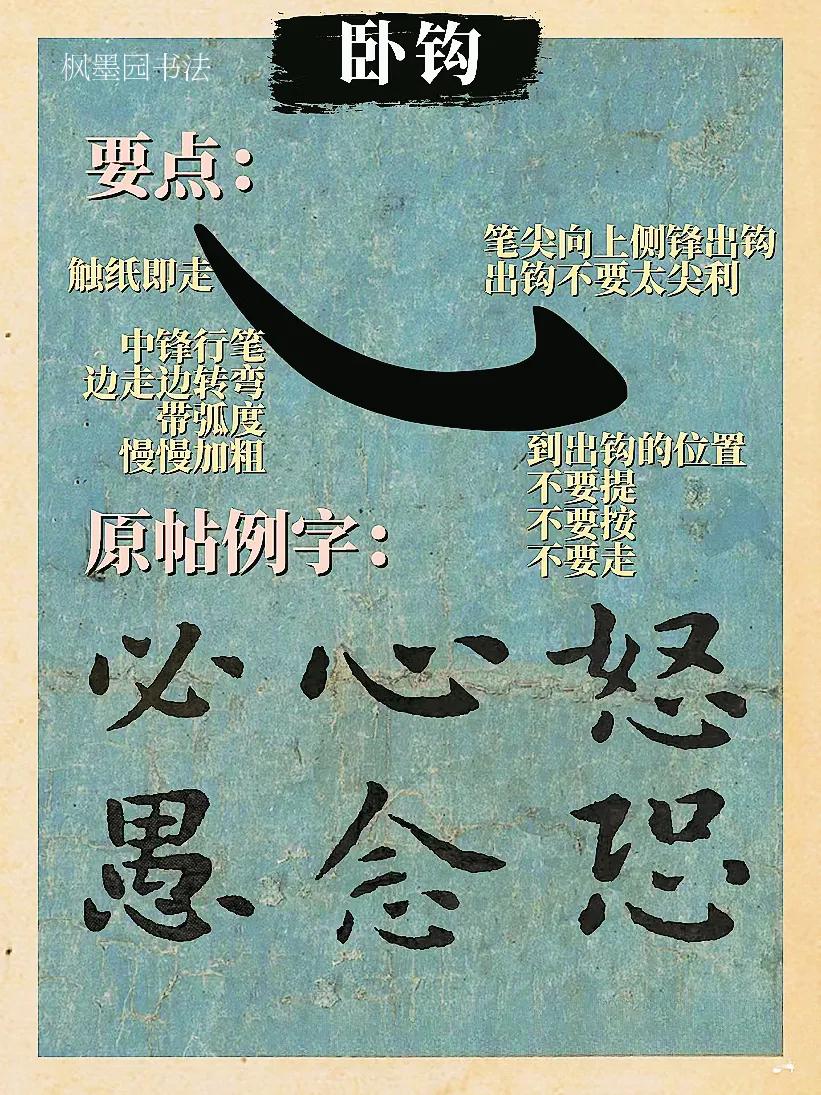 卧钩
枫墨园书法
要点：
触纸即走
笔尖向上侧锋出钩
出钩不要太尖利
中锋行笔
边走边转弯
带弧度
慢慢加粗
到出钩的位置
不要提
不要按
不要走
原帖例字：
必 心 怒
愚 念 恐